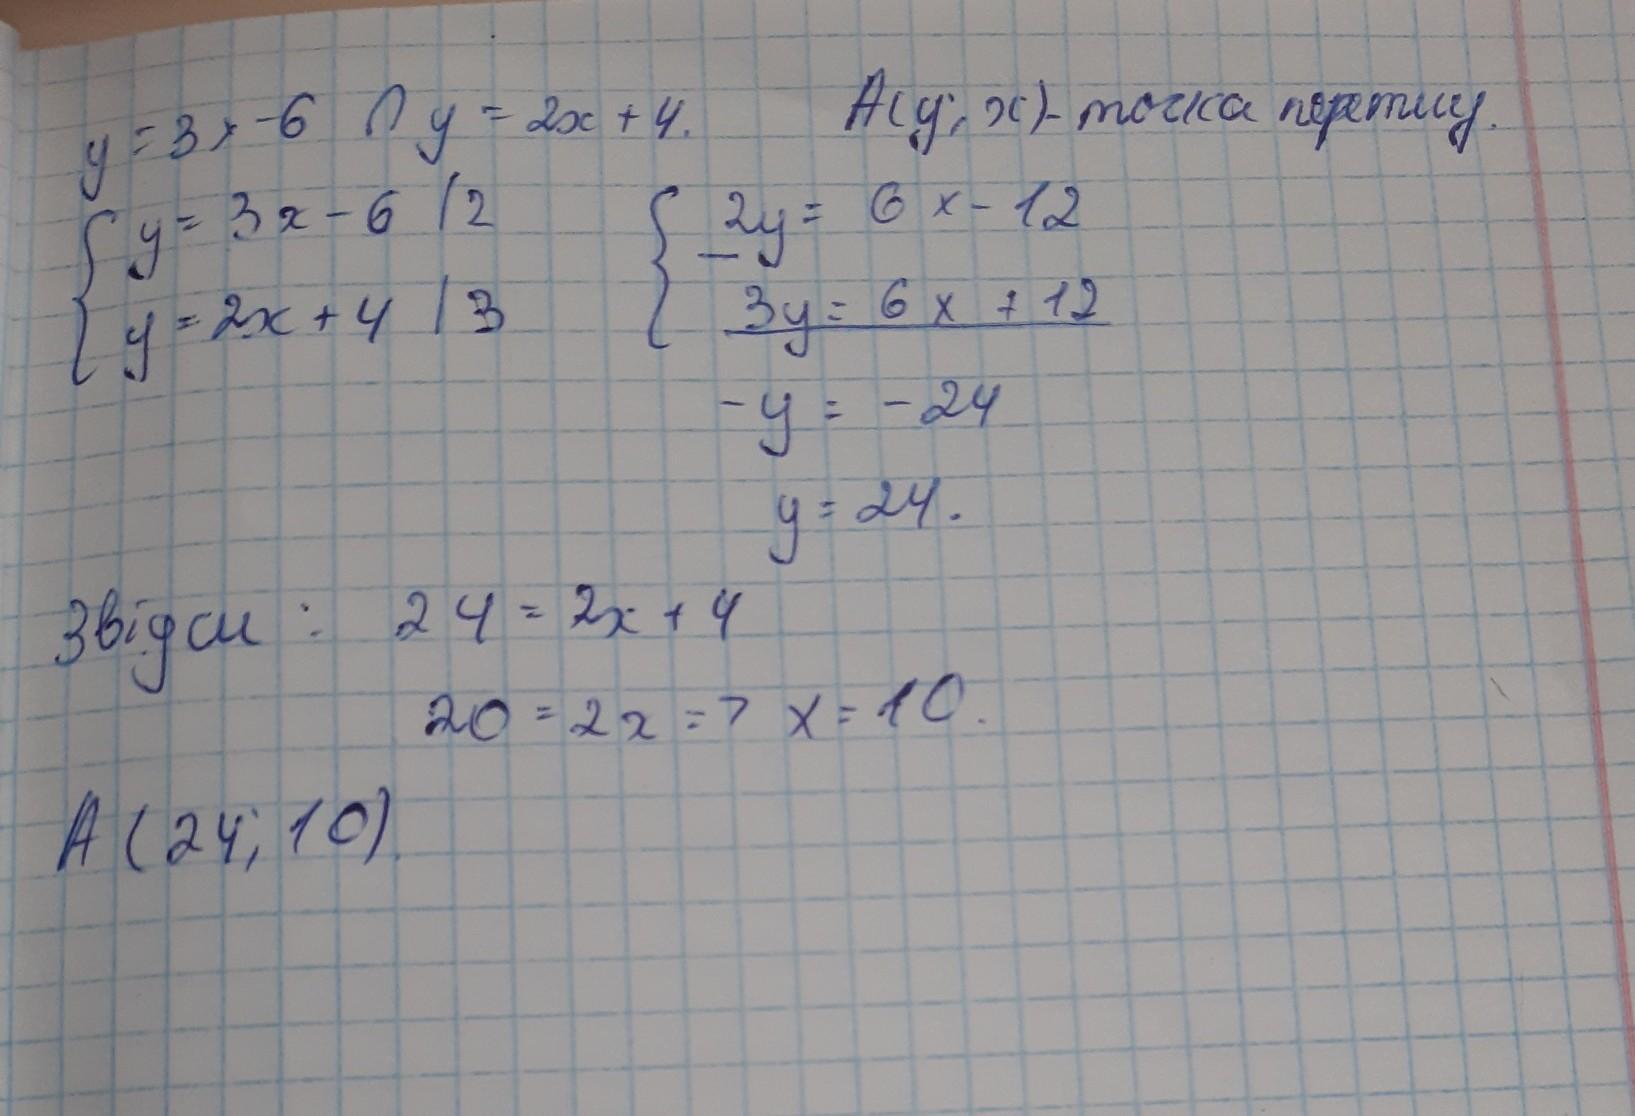 y = 3x - 6 ∩ y = 2x + 4. A(y; x) - точка перетину.
{ y = 3x - 6 | 2
y = 2x + 4 | 3
{ _ 2y = 6x - 12
3y = 6x + 12
-y = -24
y = 24.
Звідси : 24 = 2x + 4
20 = 2x => x = 10.
A (24; 10).